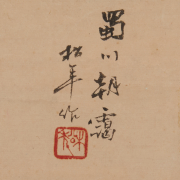 蜀川朝靄
松年作